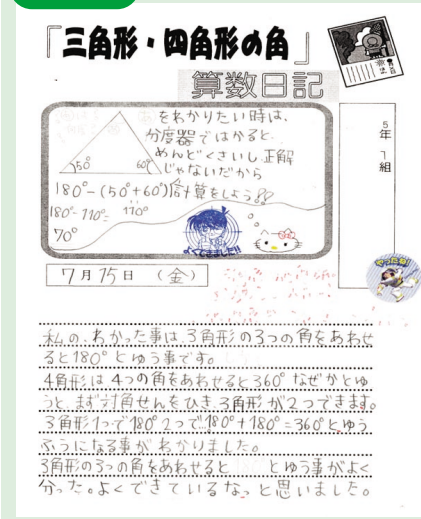 「三角形・四角形の角」
算数日記
5年 1組
をわかりたい時は、
分度器ではかると、
めんどくさいし正解
じゃないだから
50° 60°
180°-(50°+60°)計算をしよう
180°-110°= 110°
70°
よくできました!!
やったね!
7月15日 (金)
私の、わかった事は、3角形の3つの角をあわせ
ると180°とゆう事です。
4角形は4つの角をあわせると360°なぜかとゆ
うと、まず対角せんをひき、3角形が2つできます。
3角形1つで180°2つで180°+180°=360°とゆう
ふうになる事がわかりました。
3角形の3つの角をあわせると とゆう事がよく
分った。よくできているなっと思いました。